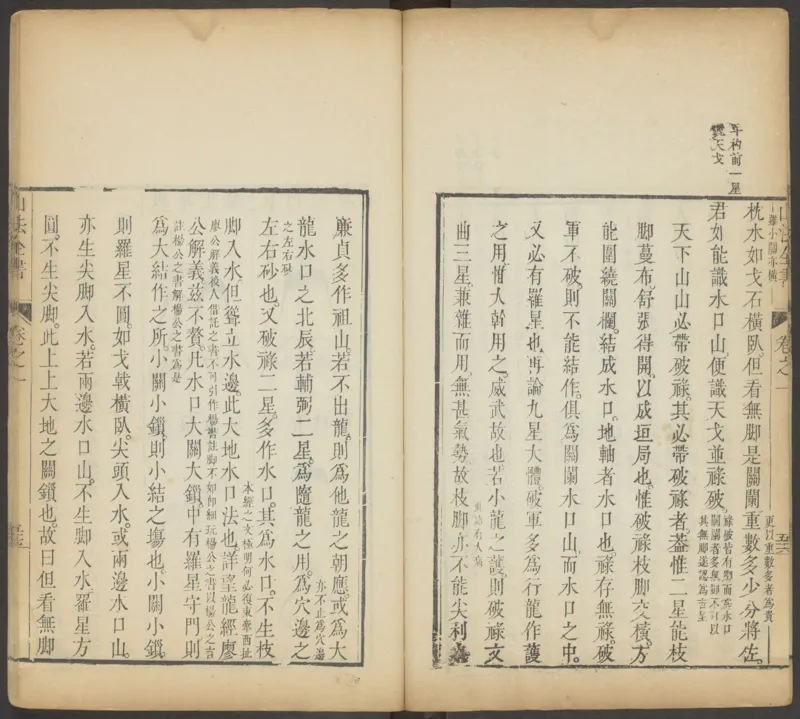 斗杓前一星
天戈
山法全書
卷之一
枕水如戈石橫臥但看無脚是關闌重數多少分將佐
更以重數多者為貴
君如能識水口山便識天戈並祿破
祿破皆有脚而為水口
天下山山必帶破祿其必帶破祿者葢惟二星能枝
脚蔓布舒張得開以成垣局也惟破祿枝脚交橫方
能圍繞關欄結成水口地軸者水口也祿存無祿破
軍不破則不能結作俱為關闌水口山而水口之中
又必有羅星也再論九星大體破軍多為行龍作護
之用惟大幹用之威武故也若小龍之護則破祿文
曲三星兼雜而用無甚氣勢故枝脚亦不能尖利
廉貞多作祖山若不出龍則為他龍之朝應或為大
龍水口之北辰若輔弼二星為隨龍之用為穴邊之
亦不止為穴邊
之左右砂
左右砂也又破祿二星多作水口其為水口不生枝
脚入水但聳立水邊此大地水口法也詳望龍經廖
公解義茲不贅凡水口大關大鎖中有羅星守門則
註楊公之書解楊公之書為是
為大結作之所小關小鎖則小結之塲也小關小鎖
則羅星不圓如戈戟橫臥尖頭入水或兩邊水口山
亦生尖脚入水若兩邊水口山不生脚入水羅星方
圓不生尖脚此上上大地之關鎖也故曰但看無脚
山法全書
卷之一